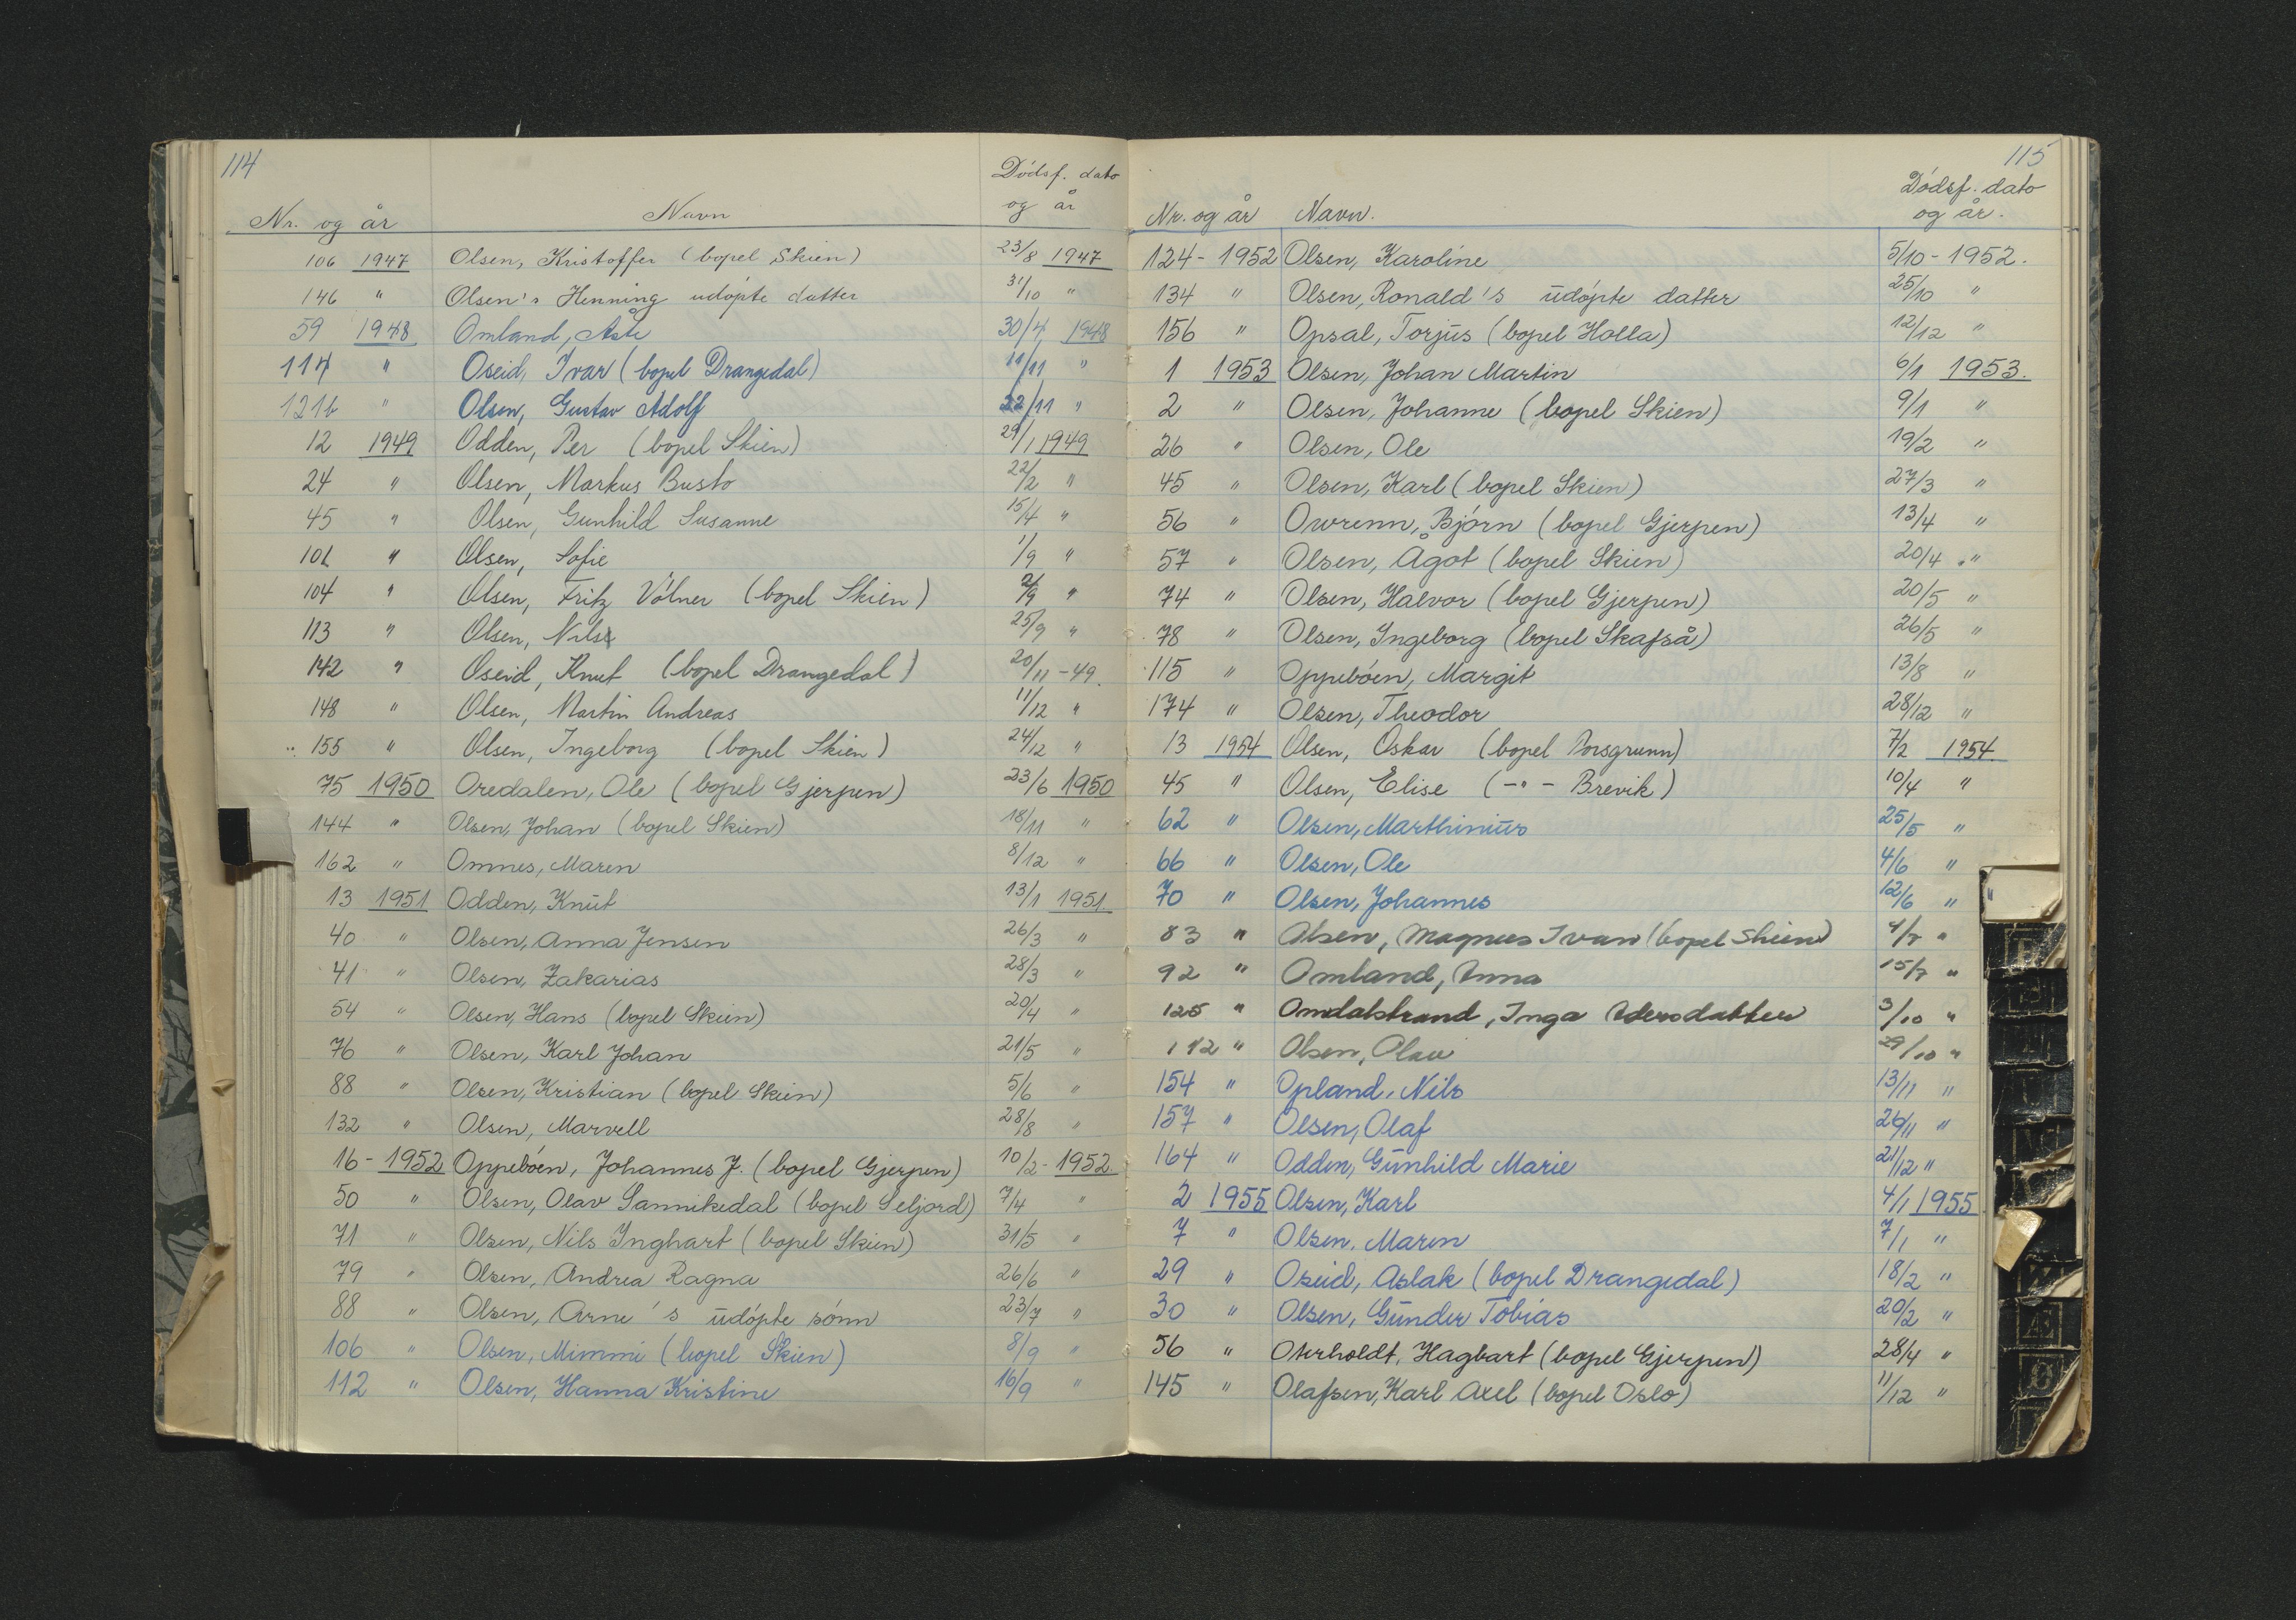 114
Dödsf. dato
Nr. og år Navn og år
106 1947 Olsen, Kristoffer (bopel Skien) 23/8 1947
146 " Olsen's Henning udöpte datter 31/10 "
59 1948 Omland, Aste 30/4 1948
114 " Oseid, Ivar (bopel Drangedal) 11/11 "
121b " Olsen, Gustav Adolf 22/11 "
12 1949 Odden, Per (bopel Skien) 29/1 1949
24 " Olsen, Markus Busto 22/2 "
45 " Olsen, Gunhild Susanne 15/4 "
101 " Olsen, Sofie 1/9 "
104 " Olsen, Fritz Völner (bopel Skien) 2/9 "
113 " Olsen, Nils 25/9 "
142 " Oseid, Knut (bopel Drangedal) 20/11 -49.
148 " Olsen, Martin Andreas 11/12 "
155 " Olsen, Ingeborg (bopel Skien) 24/12 "
75 1950 Oredalen, Ole (bopel Gjerpen) 23/6 1950
144 " Olsen, Johan (bopel Skien) 18/11 "
162 " Omnes, Maren 8/12 "
13 1951 Odden, Knut 13/1 1951
40 " Olsen, Anna Jensen 26/3 "
41 " Olsen, Zakarias 28/3 "
54 " Olsen, Hans (bopel Skien) 20/4 "
76 " Olsen, Karl Johan 21/5 "
88 " Olsen, Kristian (bopel Skien) 5/6 "
132 " Olsen, Marvell 28/8 "
16 - 1952 Oppeböen, Johannes J. (bopel Gjerpen) 10/2 - 1952.
50 " Olsen, Olav Sannikedal (bopel Seljord) 7/4 "
71 " Olsen, Nils Inghart (bopel Skien) 31/5 "
79 " Olsen, Andrea Ragna 26/6 "
88 " Olsen, Arne's udöpte sönn 23/7 "
106 " Olsen, Mimmi (bopel Skien) 8/9 "
112 " Olsen, Hanna Kristine 16/9 "
115
Dödsf. dato
Nr. og år Navn. og år.
124 - 1952 Olsen, Karoline 5/10 - 1952.
134 " Olsen, Ronald's udöpte datter 25/10 "
156 " Opsal, Torjus (bopel Holla) 12/12 "
1 1953 Olsen, Johan Martin 6/1 1953.
2 " Olsen, Johanne (bopel Skien) 9/1 "
26 " Olsen, Ole 19/2 "
45 " Olsen, Karl (bopel Skien) 27/3 "
56 " Owrenn, Björn (bopel Gjerpen) 13/4 "
57 " Olsen, Ågot (bopel Skien) 20/4 "
74 " Olsen, Halvor (bopel Gjerpen) 20/5 "
78 " Olsen, Ingeborg (bopel Skafså) 26/5 "
115 " Oppeböen, Margit 13/8 "
174 " Olsen, Theodor 28/12 "
13 1954 Olsen, Oskar (bopel Porsgrunn) 7/2 1954
45 " Olsen, Elise (-"- Brevik) 10/4 "
62 " Olsen, Marthinius 25/5 "
66 " Olsen, Ole 4/6 "
70 " Olsen, Johannes 12/6 "
83 " Olsen, Magnus Ivar (bopel Skien) 4/7 "
92 " Omland, Anna 15/7 "
125 " Omdalstrand, Inga 3/10 "
142 " Olsen, Olav 29/10 "
154 " Opland, Nils 13/11 "
157 " Olsen, Olaf 26/11 "
164 " Odden, Gunhild Marie 21/12 "
2 1955 Olsen, Karl 4/1 1955
7 " Olsen, Maren 7/1 "
29 " Oseid, Aslak (bopel Drangedal) 18/2 "
30 " Olsen, Gunder Tobias 20/2 "
56 " Oterholdt, Hagbart (bopel Gjerpen) 28/4 "
145 " Olafsen, Karl Axel (bopel Oslo) 11/12 "
Æ
Ø